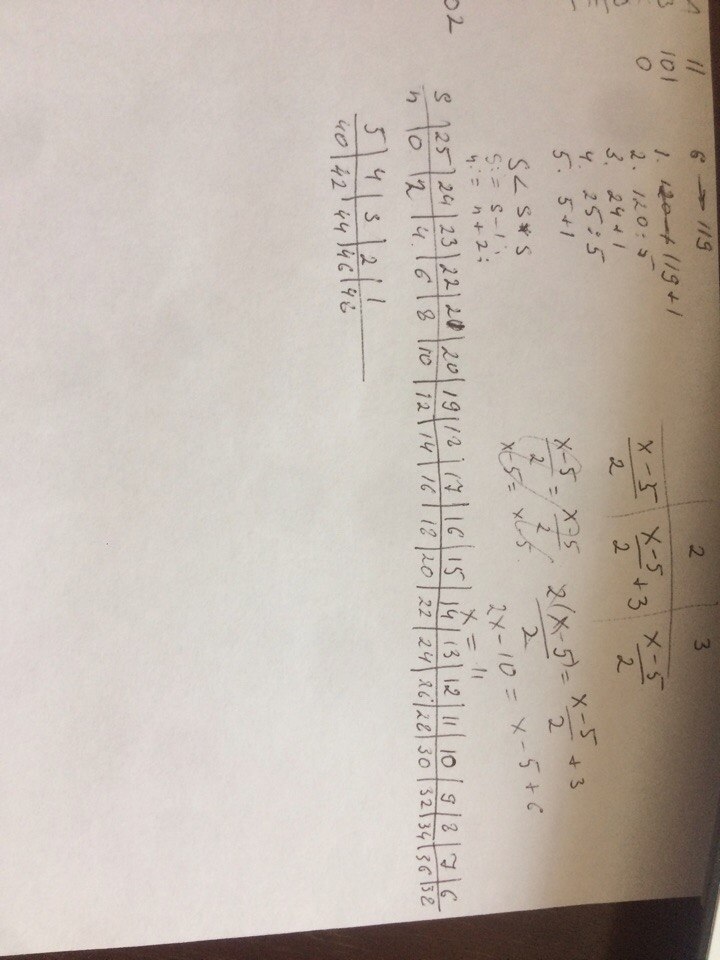 11
101
0
6 → 119
1. 120 + 119+1
2. 120:5
3. 24+1
4. 25:5
5. 5+1
S < S*S
S:= S-1;
n:= n+2;
2 3
x-5/2 x-5/2 +3 x-5/2
x-5/2 = x-5/2
x-5 = x-5
2(x-5)/2 = x-5/2 +3
2x-10 = x-5+6
x = 11
02
S 25 24 23 22 21 20 19 18 17 16 15 14 13 12 11 10 9 8 7 6
n 0 2 4 6 8 10 12 14 16 18 20 22 24 26 28 30 32 34 36 38
5 4 3 2 1
40 42 44 46 48